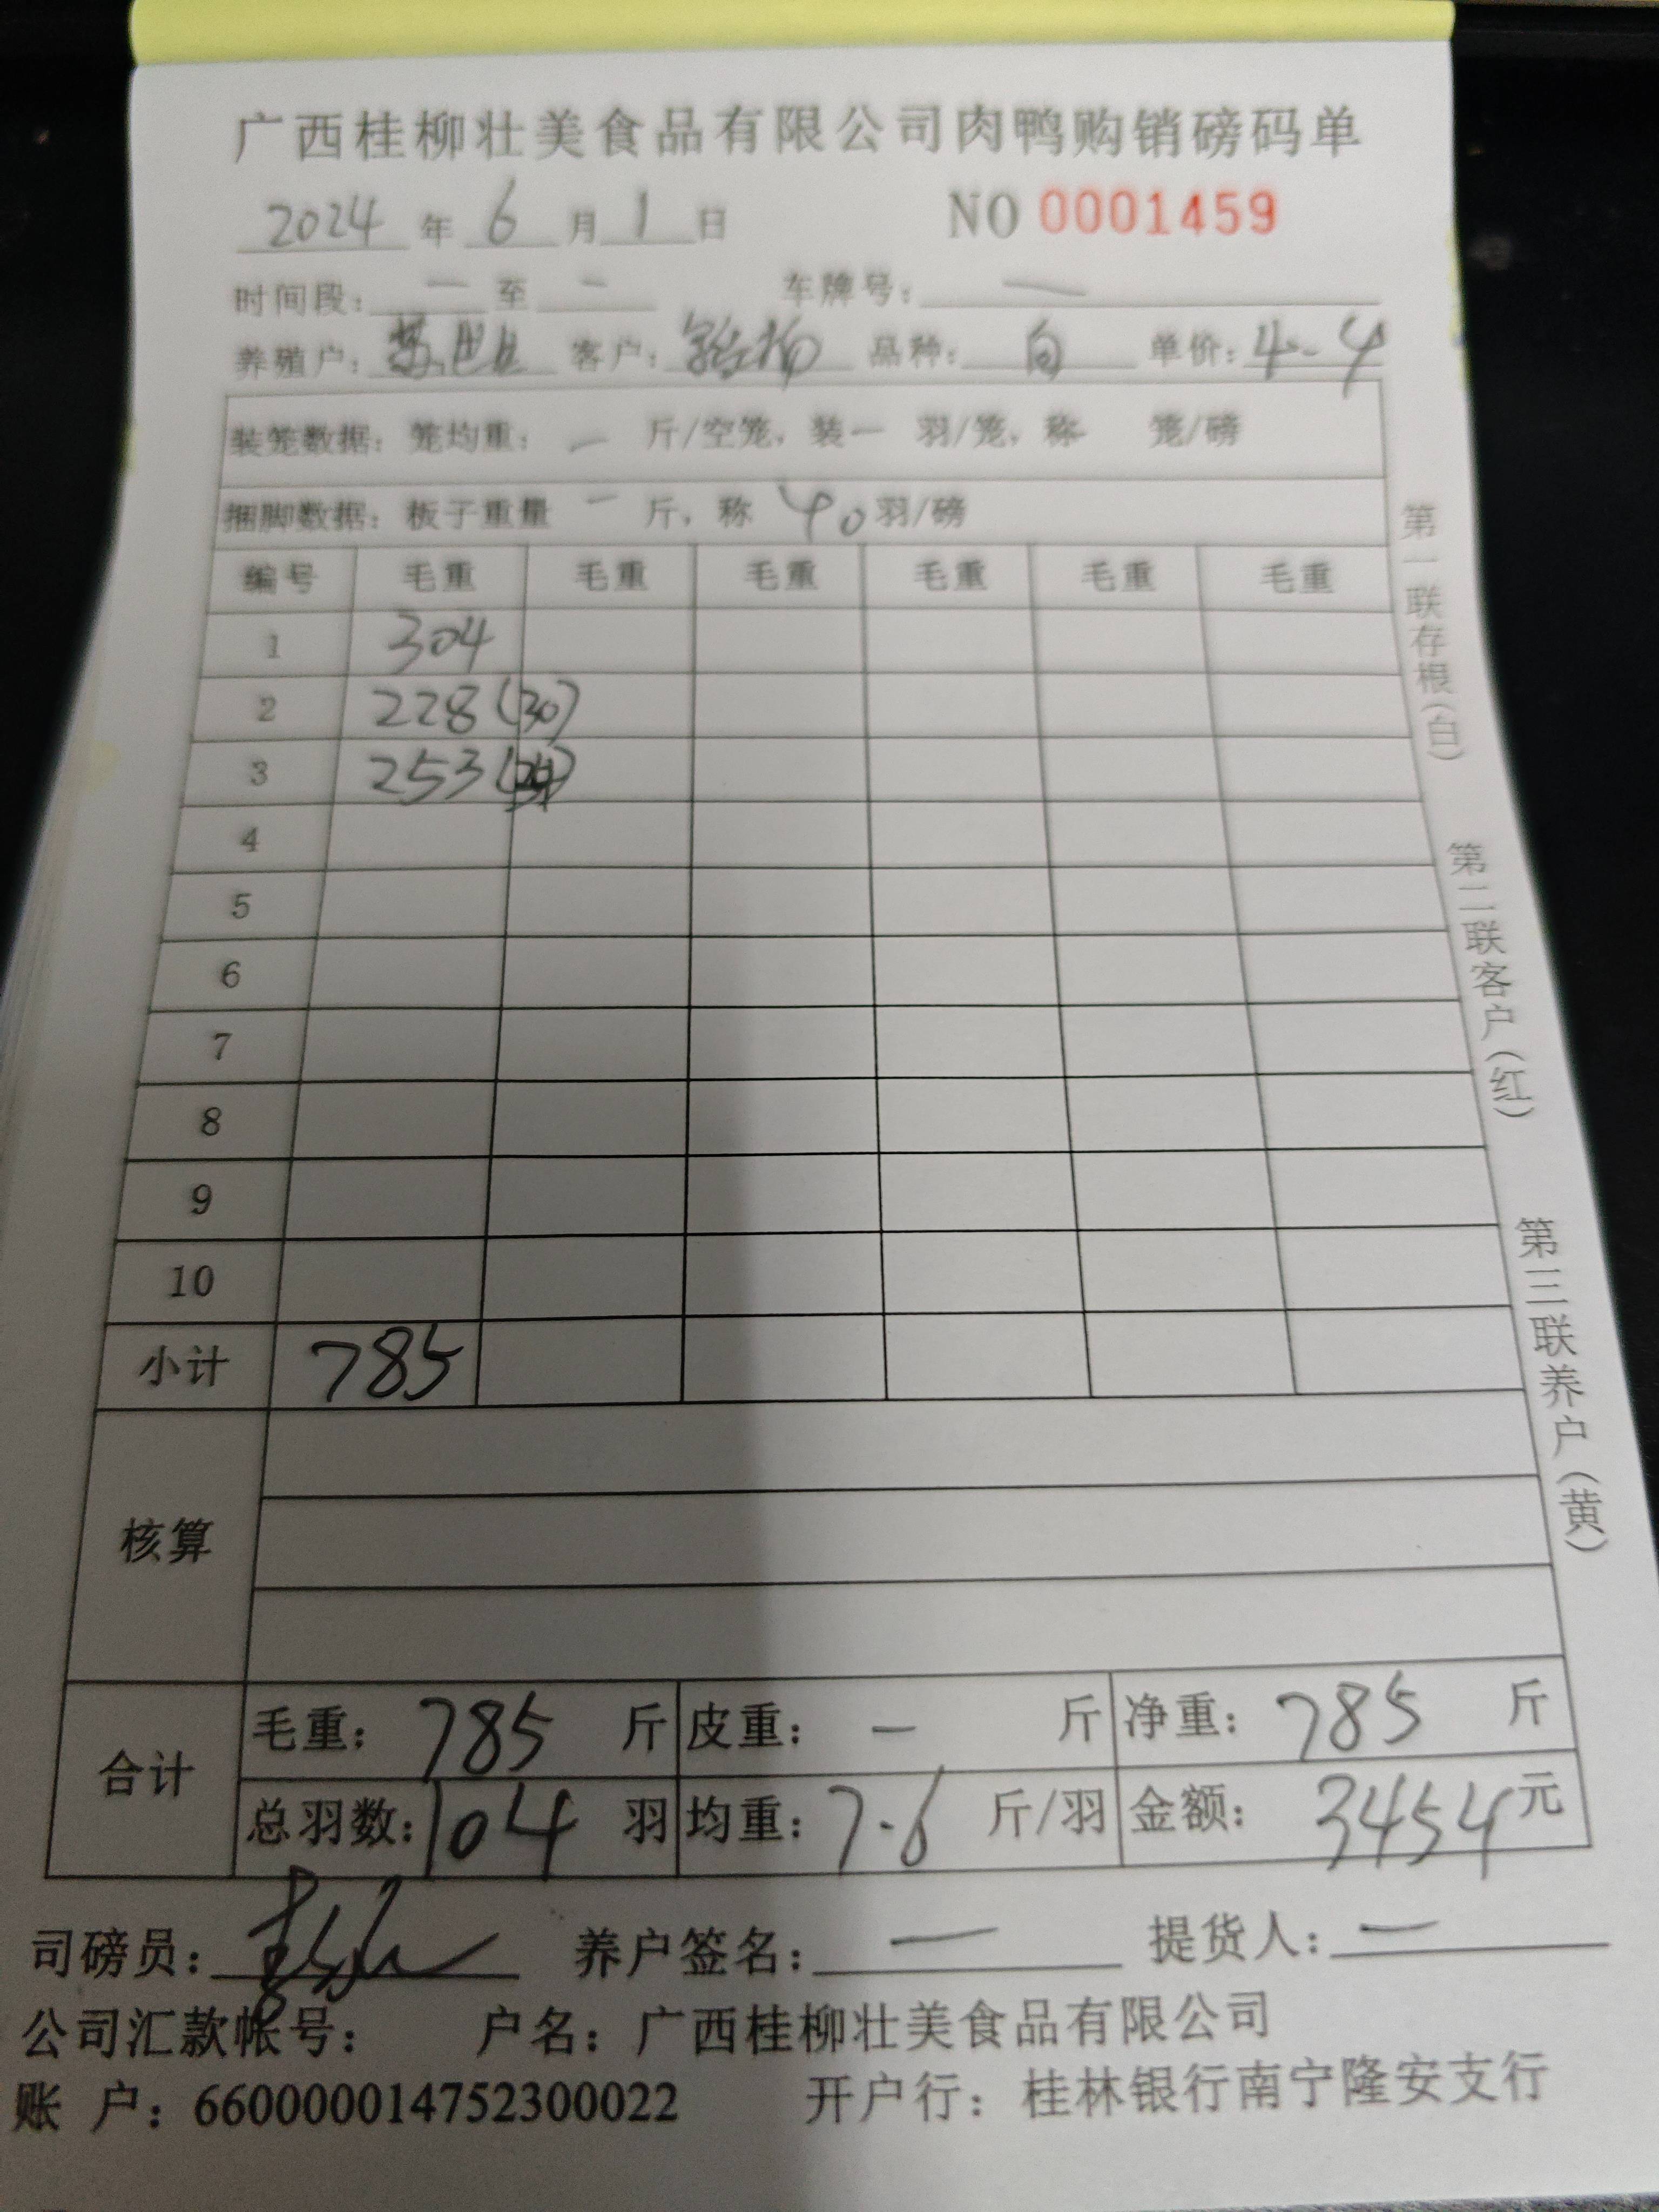 广西桂柳壮美食品有限公司肉鸭购销磅码单
2024 年 6 月 1 日 NO 0001459
时间段: — 至 — 车牌号: —
养殖户: 客户: 品种: 白 单价: 4.4
装笼数据: 笼均重: — 斤/空笼, 装 — 羽/笼, 称 — 笼/磅
捆脚数据: 板子重量 — 斤, 称 40 羽/磅
编号 毛重 毛重 毛重 毛重 毛重 毛重
1 304
2 228 (30)
3 253 (34)
4
5
6
7
8
9
10
小计 785
核算
合计 毛重: 785 斤 皮重: — 斤 净重: 785 斤
总羽数: 104 羽 均重: 7.6 斤/羽 金额: 3454 元
司磅员: 养户签名: — 提货人: —
公司汇款帐号: 户名: 广西桂柳壮美食品有限公司
账 户: 660000014752300022 开户行: 桂林银行南宁隆安支行
第一联存根(白)
第二联客户(红)
第三联养户(黄)